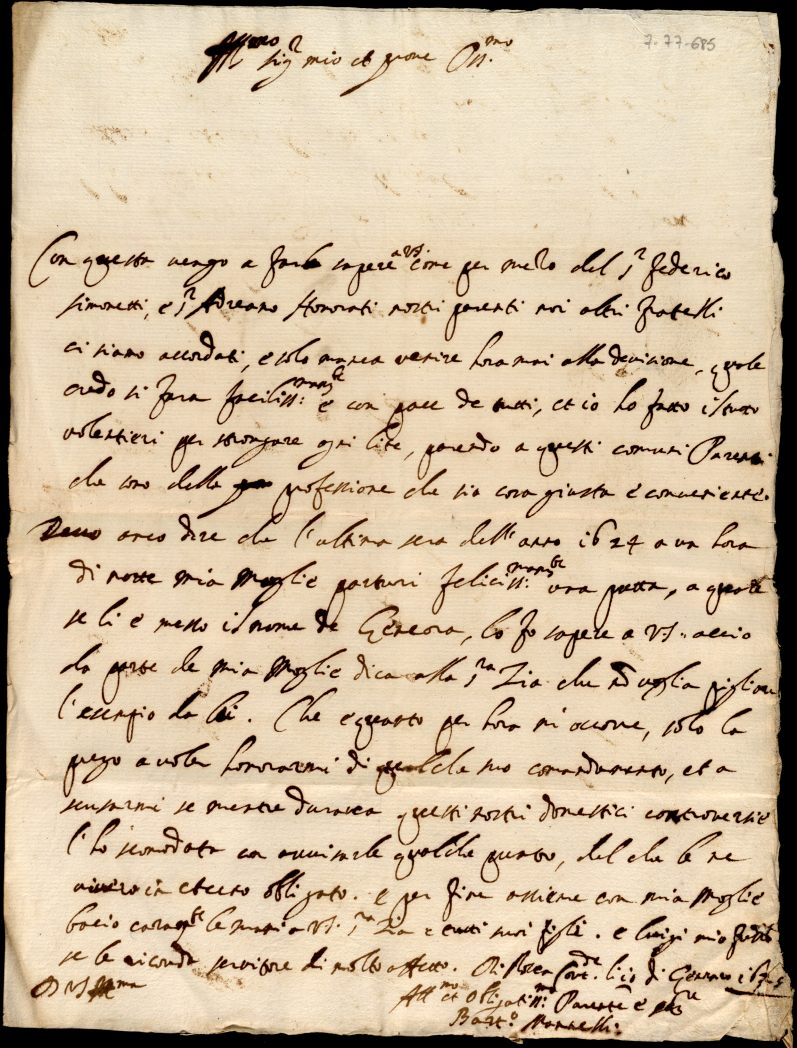 7-77-685
Ill.mo Sig.r mio et prone Oss.mo
Con questa vengo a farle sapere a VS. come per mezo del s.r Federico
Simonetti, e s.r Adreano Honorati nostri parenti noi altri fratelli
ci siamo accordati, e solo manca venire hora mai alla devisione, quale
credo si farà faciliss:mam.te e con pace de tutti, et io ho fatto il tutto
volentieri per troncare ogni lite, parendo a questi comuni Parenti
che sono della professione che sia cosa giusta e conveniente.
Devo anco dire che l'ultima sera dell'anno 1624 a un hora
di notte mia Moglie parturì feliciss:mam.te una putta, a quale
se li è messo il nome de, lo fo sapere a VS. acciò
da parte de mia Moglie dica alla s.ra Zia che nõ voglia pigliare
l'esempio da lei. Che è quanto per hora mi occorre, solo la
prego a voler honorarmi di qualche suo comandamento, et a
scusarmi se mentre durava questi nostri domestici controversie
l'ho scomodata con avvisarle qualche punto, del che le ne
vivero in eterno obligato. e per fine assieme con mia Moglie
bacio caram.te le mani a VS. s.ra Zia e tutti suoi figli. e Luigi mio fratello
se le ricorda servitore di molto affetto. Di li 10 di Gennaro 1625
D VS Ill.ma
Aff.mo et Obligatiss:mo Parente e ser.re
Bart.o Mannelli: